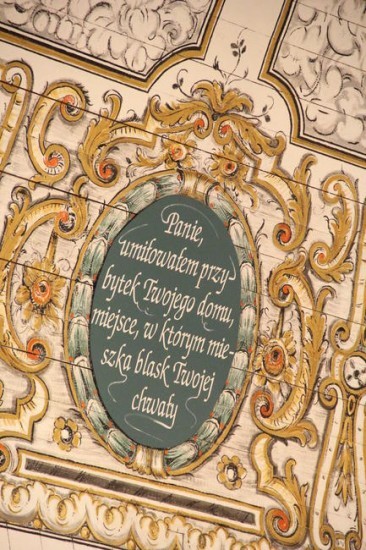 Panie,
umiłowałem przy
bytek Twojego domu,
miejsce, w którym mie-
szka blask Twojej
chwały